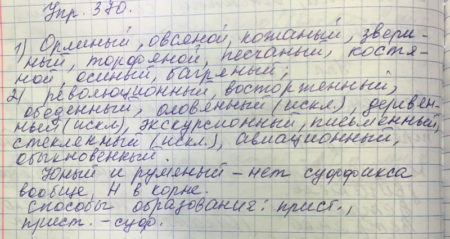 Упр. 370.
1) Орлиный, овсяной, кожаный, звери-
ный, торфяной, песчаный, костя-
ной, осиный, багряный,
2) революционный, восторженный,
обеденный, оловянный (искл), деревян-
ный (искл), экскурсионный, письменный,
стеклянный (искл.), авиационный,
обыкновенный.
Юный и румяный - нет суффикса
вообще, Н в корне.
Способы образования: прист.,
прист. - суф.